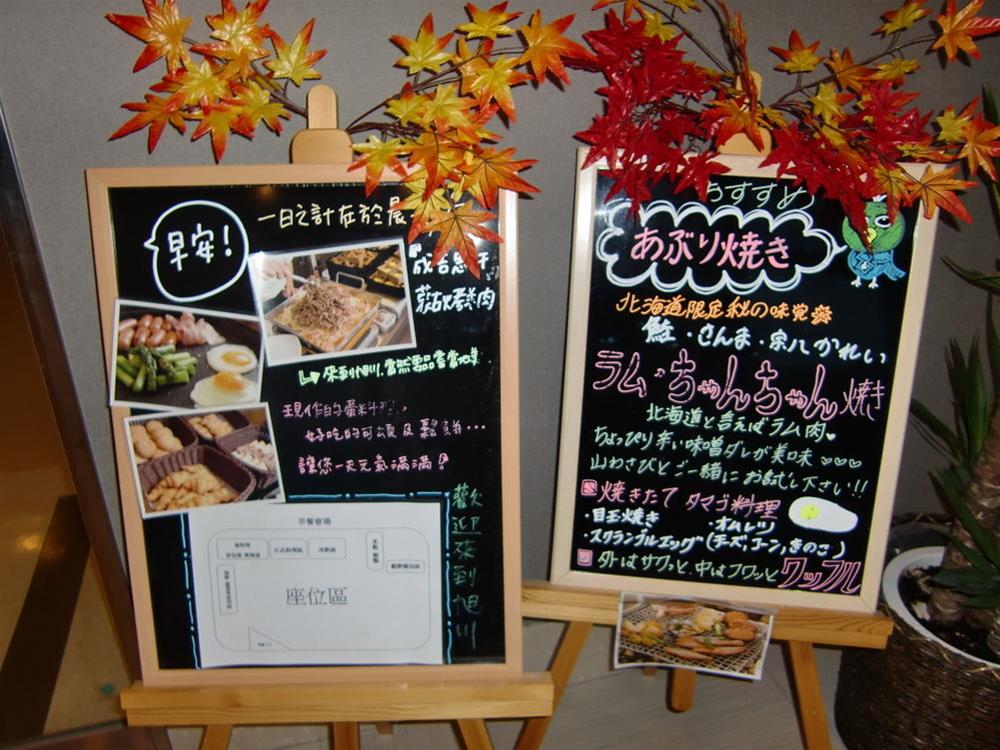 早安!
一日之計在於晨
成吉思汗
蒙古烤肉
來到旭川,當然要品嘗當地美
現作的蛋料理
好吃的可頌及鬆餅…
讓您一天元氣滿滿!
歡迎來到旭川
早餐會場
座位區
おすすめ
あぶり焼き
北海道限定秘の味覚
鮭・さんま・宗八かれい
ラム・ちゃんちゃん焼き
北海道と言えばラム肉
ちょっぴり辛い味噌ダレが美味♡♡♡
山わさびとご一緒にお試し下さい!!
焼きたて タマゴ料理
・目玉焼き ・オムレツ
・スクランブルエッグ(チーズ,コーン,きのこ)
外はサクッと、中はフワッと ワッフル